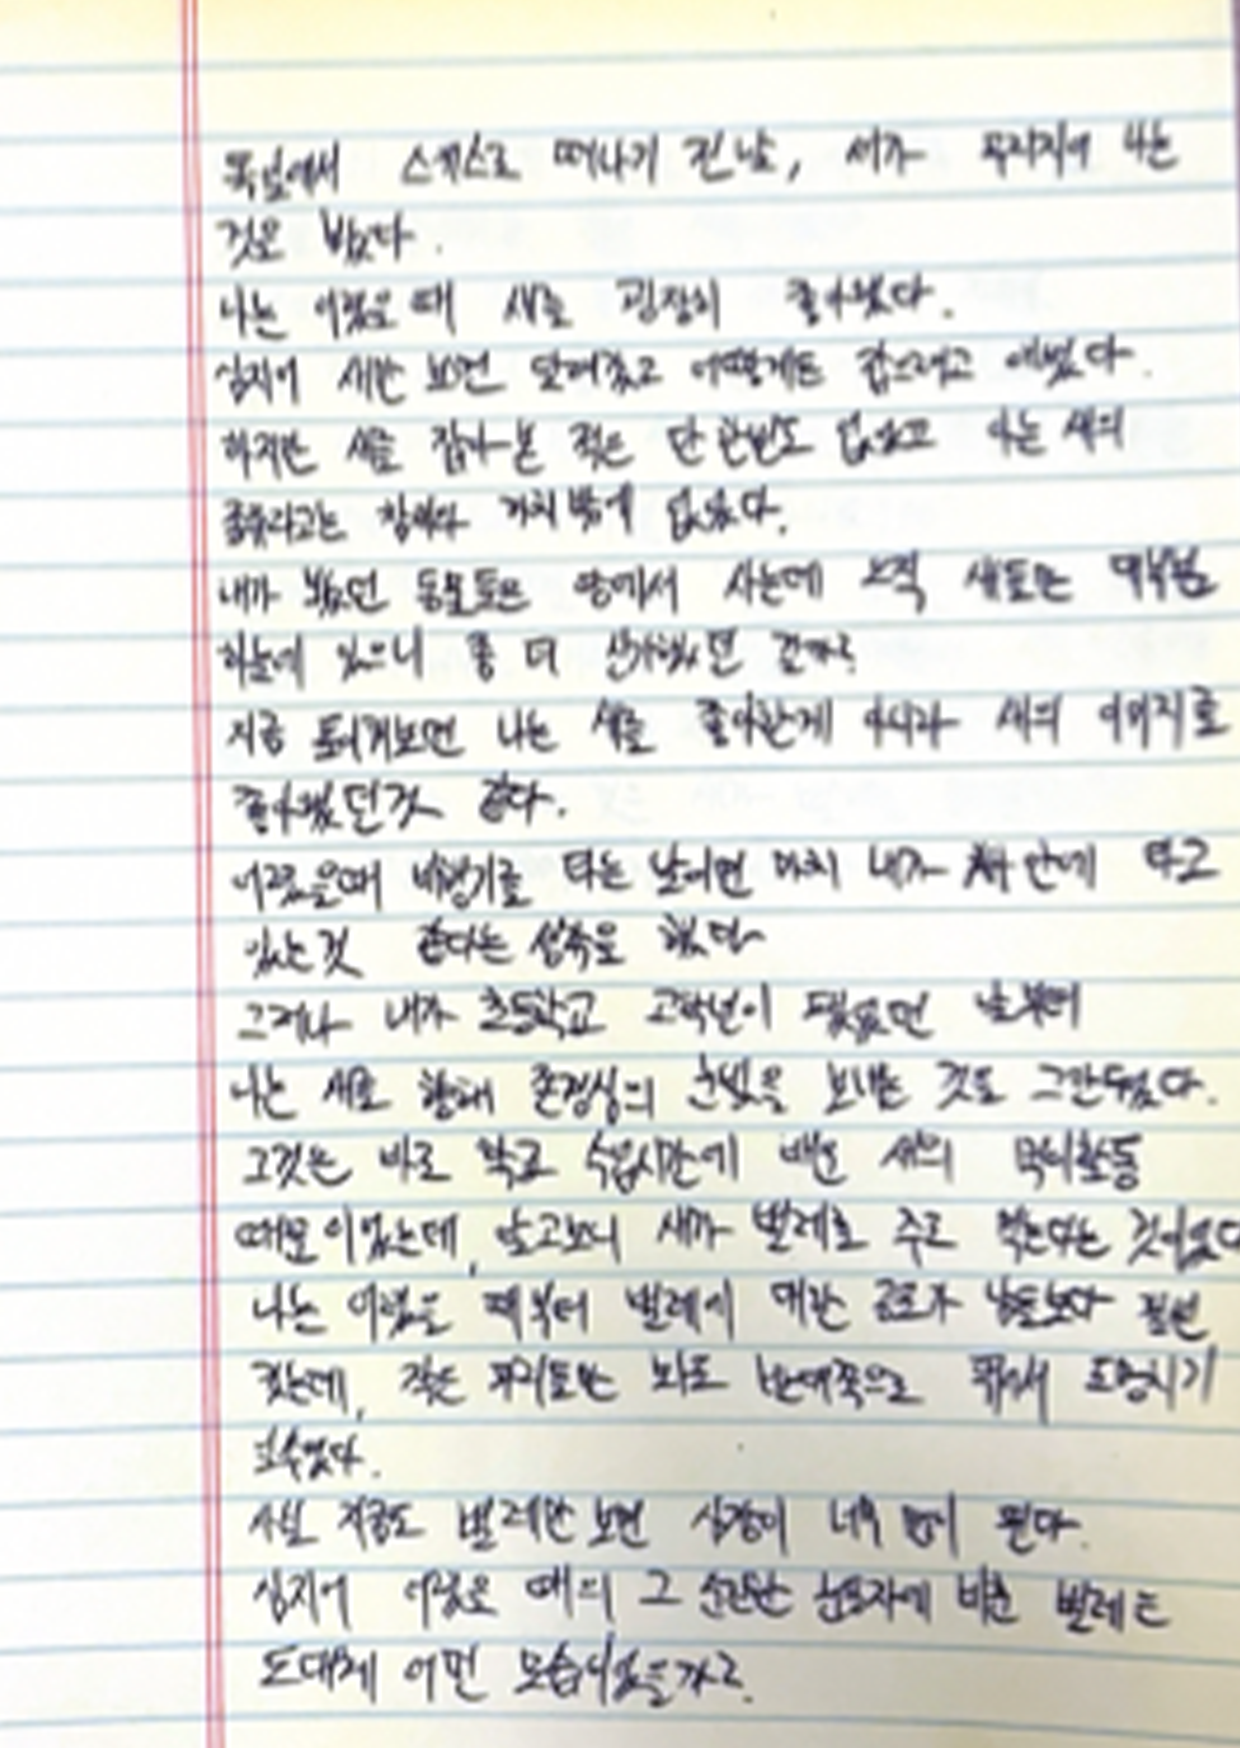 독일에서 스위스로 떠나기 전 날, 새가 무리지어 나는
것을 봤다.
나는 어렸을 때 새를 굉장히 좋아했다.
심지어 새만 보면 달려갔고 어떻게든 잡으려고 애썼다.
하지만 새를 잡아본 적은 단 한번도 없었고 아는 새의
종류라고는 참새와 까치밖에 없었다.
내가 봤던 동물들은 땅에서 사는데 오직 새들만
하늘에 있으니 좀 더 신기했던 걸까?
지금 돌이켜보면 나는 새를 좋아한게 아니라 새의 이미지를
좋아했던것 같다.
어렸을때 비행기를 타는 날이면 마치 내가 새 안에 타고
있는것 같다는 상상을 했다
그러나 내가 초등학교 고학년이 됐었던 날부터
나는 새를 향해 존경심의 눈빛을 보내는 것도 그만두었다.
그것은 바로 학교 수업시간에 배운 새의 먹이활동
때문이었는데, 알고보니 새가 벌레를 주로 먹는다는 것이었다
나는 어렸을 때부터 벌레에 대한 공포가 남들보다 훨씬
컸는데, 작은 무리들만 봐도 반대쪽으로 뛰어서 도망치기
일수였다.
사실 지금도 벌레만 보면 심장이 너무 많이 뛴다.
심지어 어렸을 때의 그 순수한 눈동자에 비친 벌레는
도대체 어떤 모습이었을까?